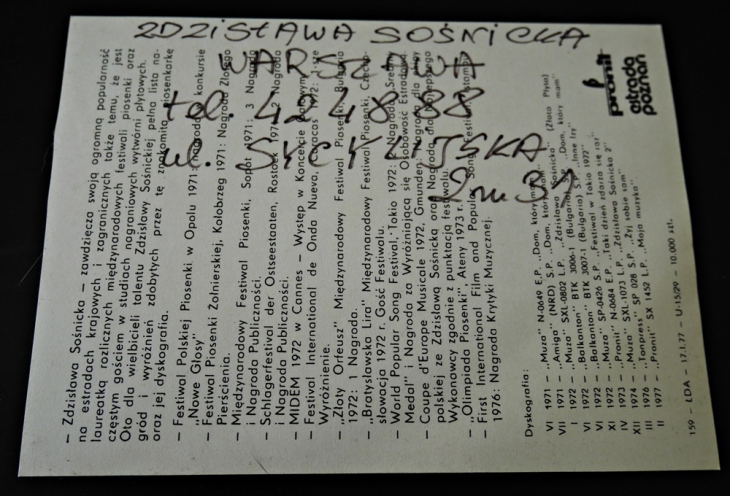 ZDZISŁAWA SOŚNICKA
WARSZAWA
tel. 42 48 88
ul.
m 37
— Zdzisława Sośnicka — zawdzięcza swoją ogromną popularność
na estradach krajowych i zagranicznych także temu, że jest
laureatką rozlicznych międzynarodowych festiwali piosenki oraz
częstym gościem w studiach nagraniowych wytwórni płytowych.
Oto dla wielbicieli talentu Zdzisławy Sośnickiej pełna lista na-
gród i wyróżnień zdobytych przez tę znakomitą piosenkarkę
oraz jej dyskografia.
— Festiwal Polskiej Piosenki w Opolu 1971: nagroda w konkursie
„Nowe Głosy"
— Festiwal Piosenki Żołnierskiej, Kołobrzeg 1971: Nagroda Złotego
Pierścienia.
— Międzynarodowy Festiwal Piosenki, Sopot 1971: 3 Nagroda
i Nagroda Publiczności.
— Schlagerfestival der Ostseestaaten, Rostock 197 2 Nagroda
i Nagroda Publiczności.
— MIDEM 1972 w Cannes — Występ w Koncercie
— Festival International de Onda Nueva, Caracos 1972:
Wyróżnienie.
— „Złoty Orfeusz" Międzynarodowy Festiwal Piosenki, Bułgaria
1972: 1 Nagroda.
— „Bratysławska Lira" Międzynarodowy Festiwal Piosenki, Czecho-
słowacja 1972 r. Gość Festiwalu.
— World Popular Song Festival, Tokio 1972: Nagroda
Medal" i Nagroda za Wyróżniającą się Osobowość Estradową.
— Coupe d'Europe Musicale 1972, Gmunden, Nagroda dla ekipy
polskiej ze Zdzisławą Sośnicką oraz Nagroda dla Najlepszego
Wykonawcy zgodnie z punktacją festiwalu.
— „Olimpiada Piosenki", Ateny 1973 r.
— First International Film and Popular Song Festival,
1976: Nagroda Krytyki Muzycznej.
Dyskografia:
VI 1971 — „Muza" N-0649 E.P. „Dom, którym
VII 1971 — „Amiga" (NRD) S.P. „Dom, któr
XII 1971 — „Muza" SXL-0802 L.P. „Zdzisława Sośnicka" (Złota Płyta)
I 1972 — „Balkanton" BTK 3006-1 (Bułgaria) „Dom, który mam"
VI 1972 — „Balkanton" BTK 3007-1 (Bułgaria) S.P.
VI 1972 — „Muza" SP-0426 S.P. „Festiwal w Tokio 1972"
XI 1972 — „Pronit" N-0684 E.P. „Taki dzień zdarza się raz"
IV 1973 — „Muza" SXL-1073 L.P. „Zdzisława Sośnicka 2"
XII 1974 — „Tonpress" SP 028 S.P. „Żyj sobie sam"
III 1976 — „Tonpress"
II 1977 — „Pronit" SX 1452 L.P. „Moja muzyka"
159 — ŁDA — 17.1.77 — U-15/29 — 10.000 szt.
pronit
estrada
poznań